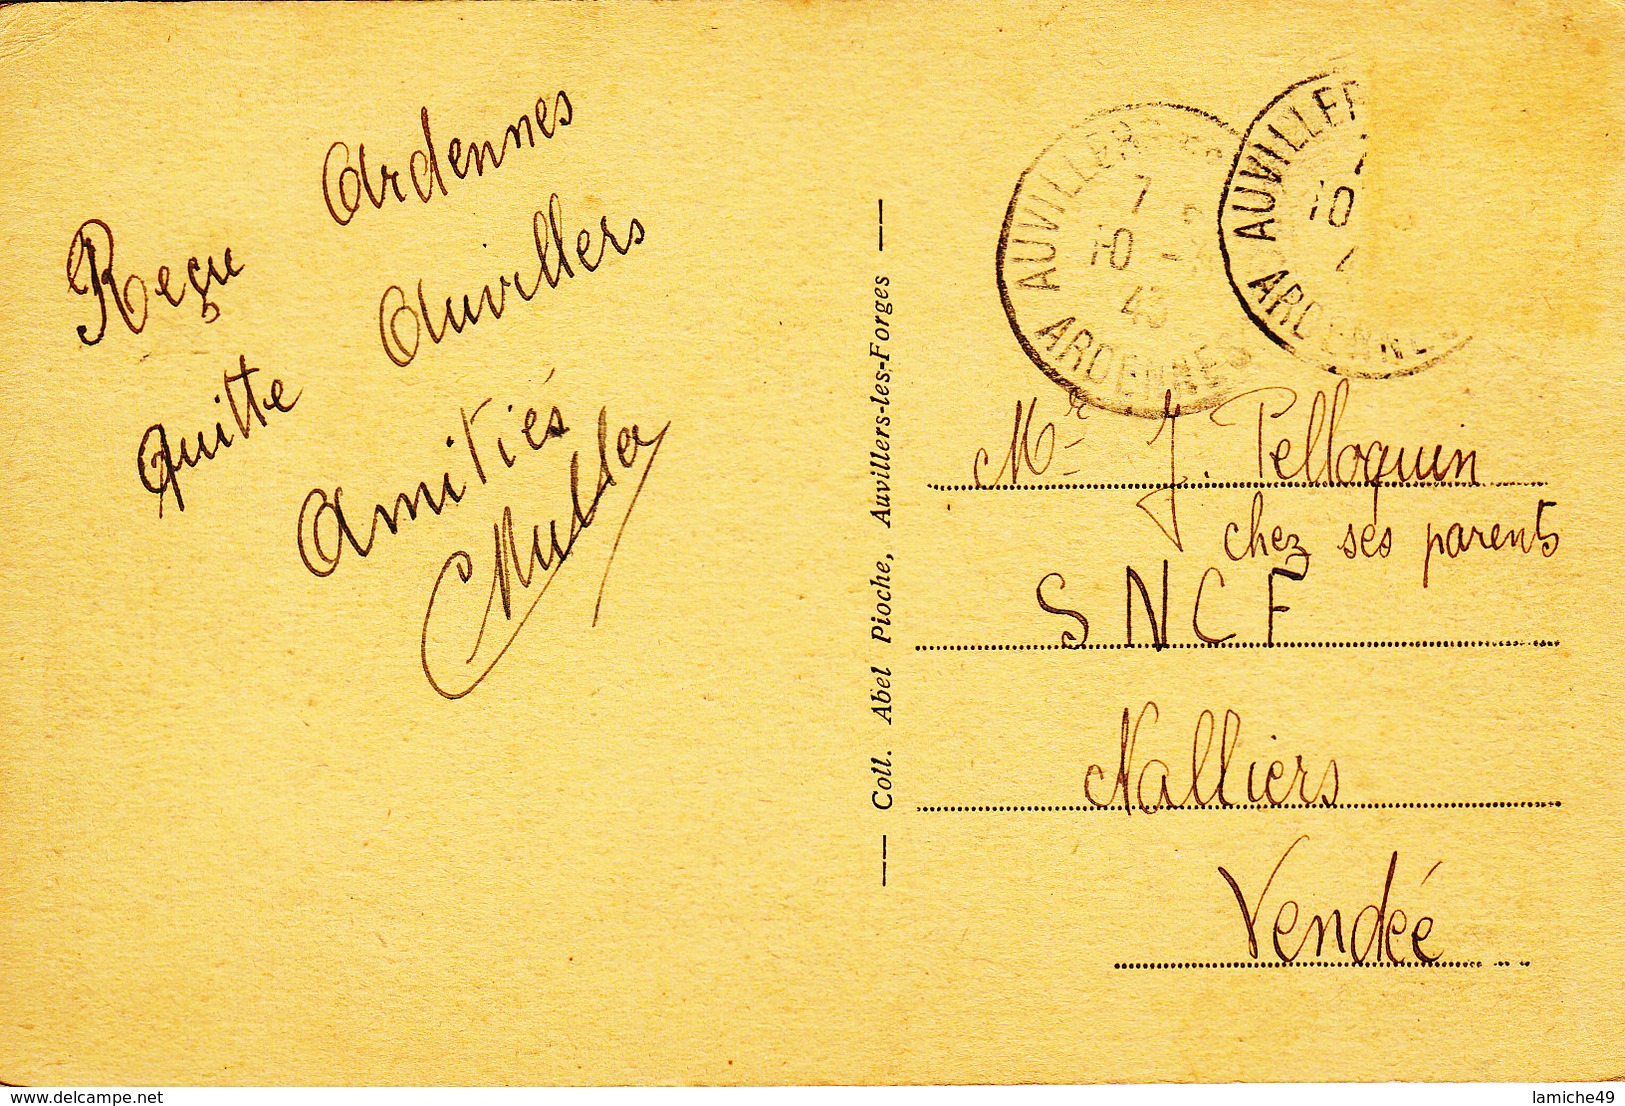 Reçu Ardennes
quitte Auvillers
Amitiés
Coll. Abel Pioche, Auvillers-les-Forges
AUVILLER
7
10 -
43
ARDENNES
AUVILLER
10
ARDENNE
Mr J. Pelloquin
chez ses parents
S N C F
Nalliers
Vendée
www.delcampe.net
lamiche49